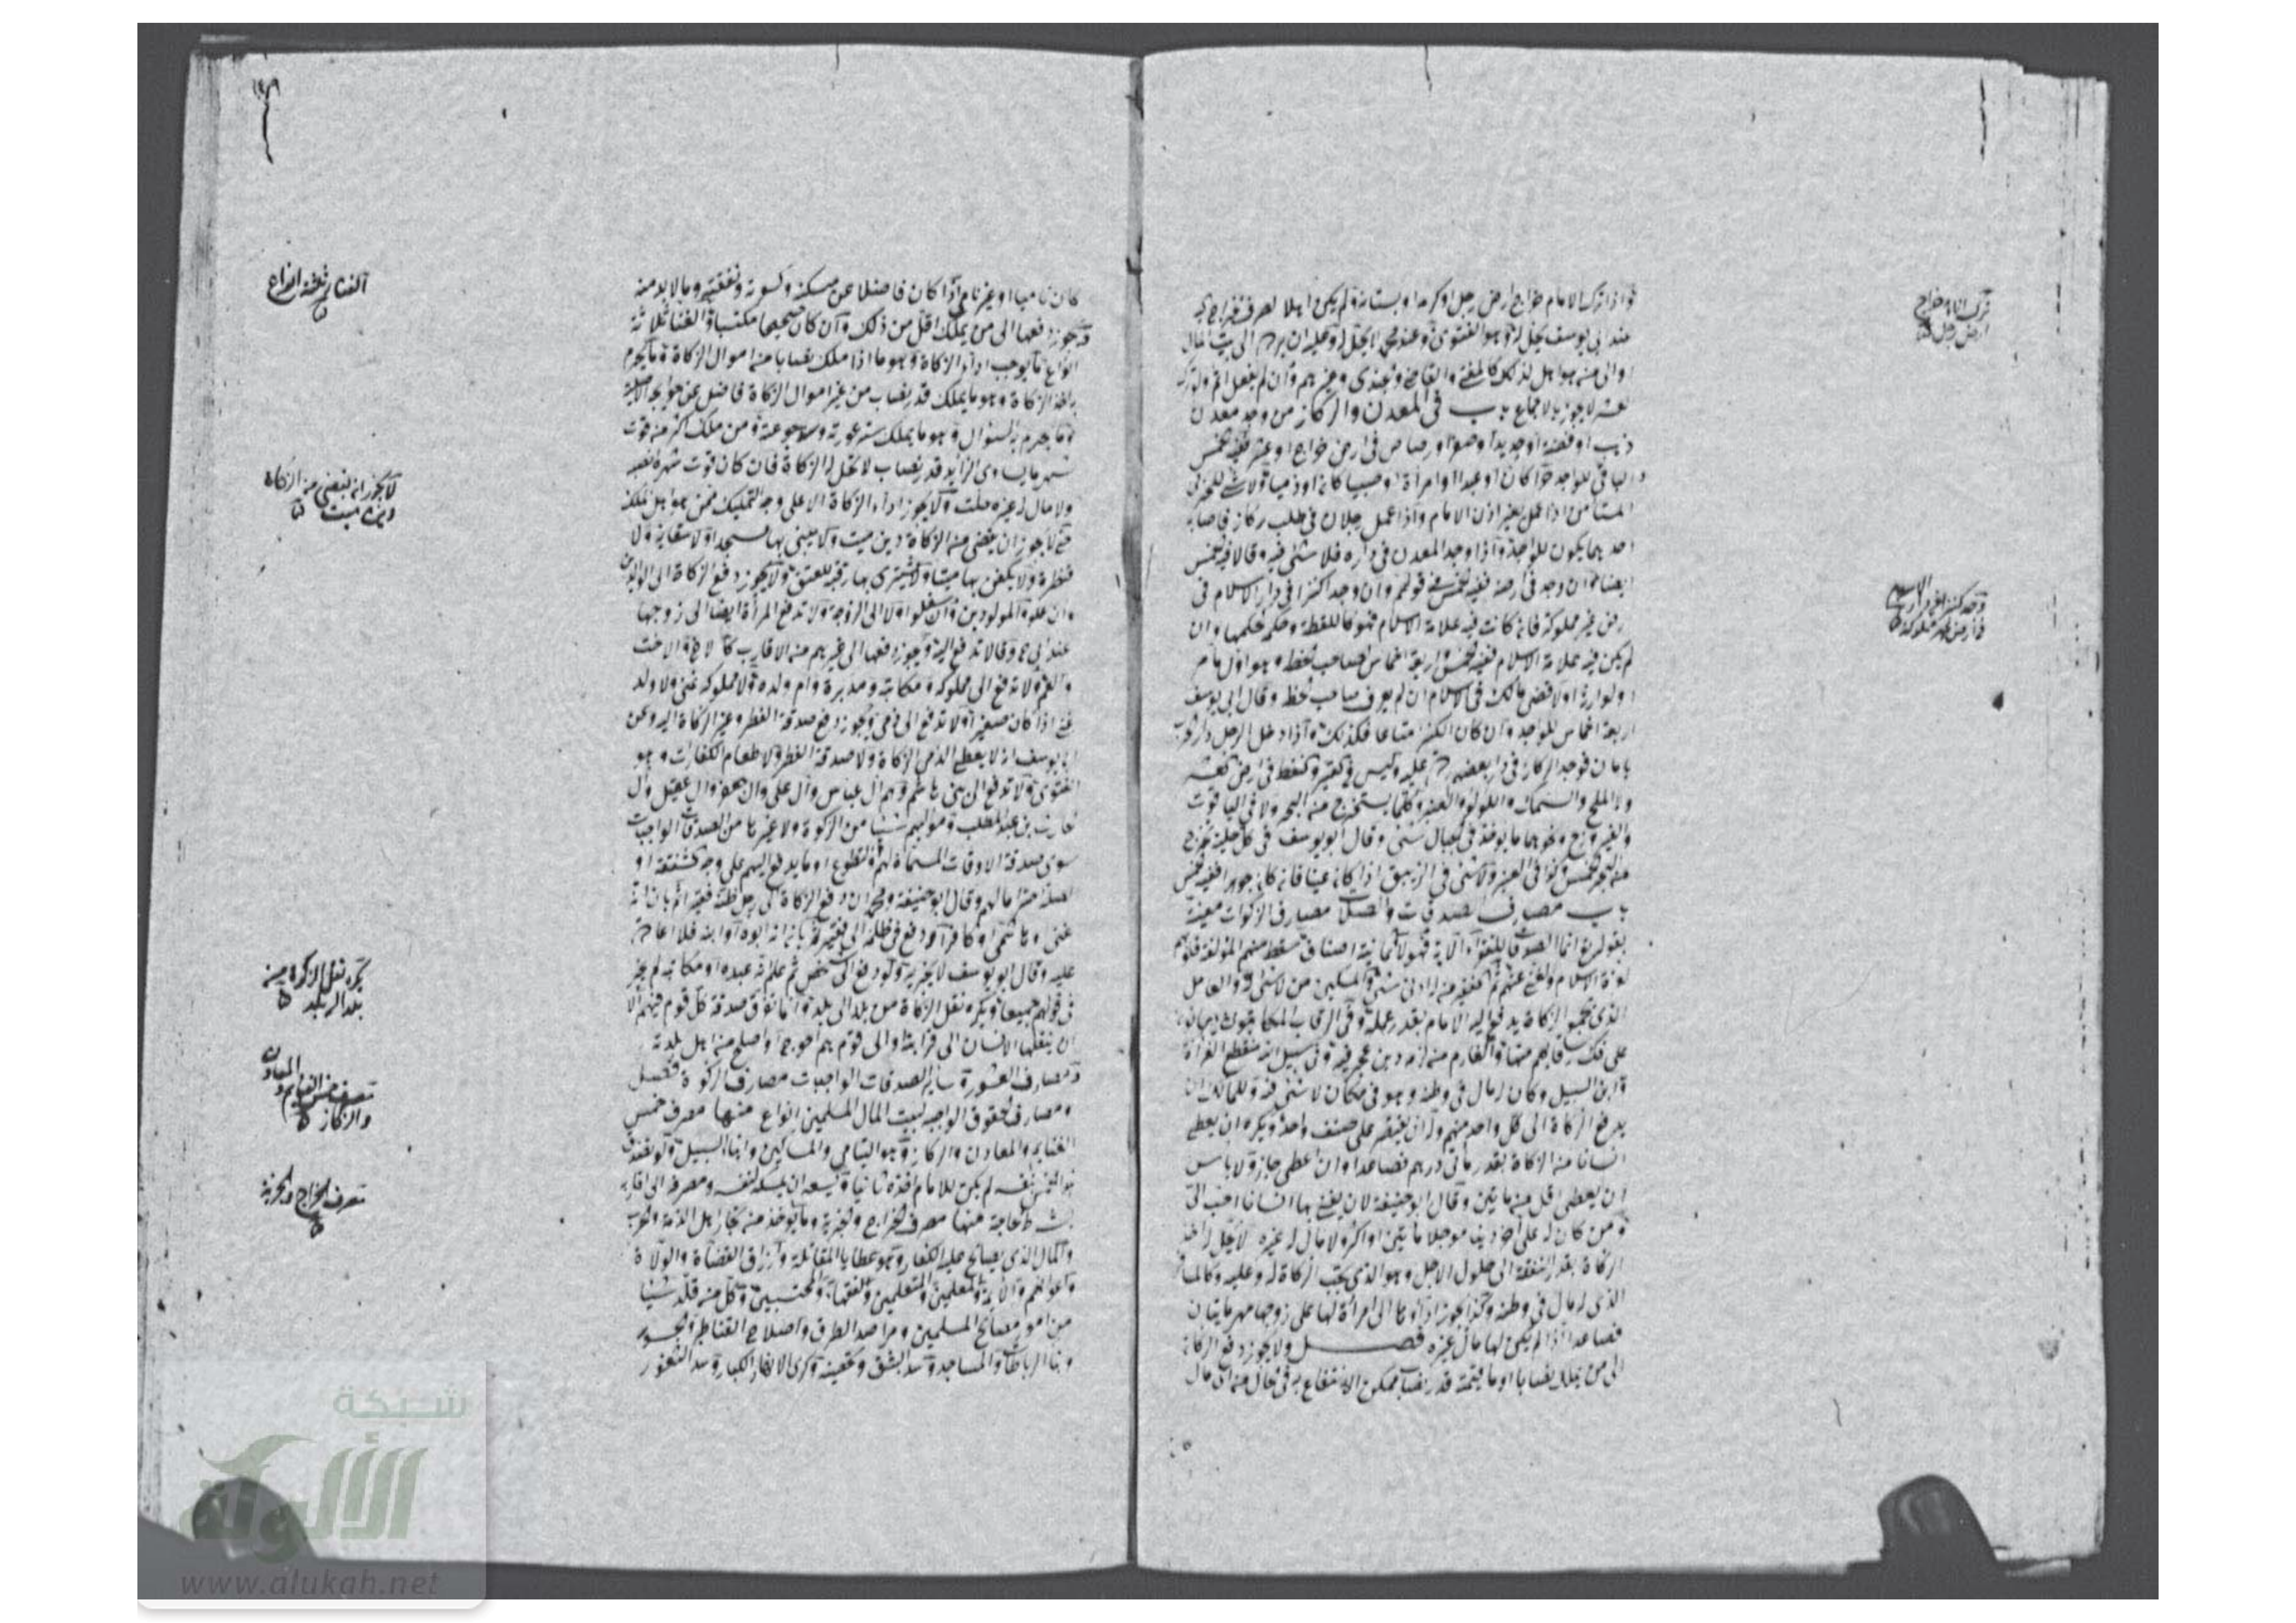 ترك الامام خراج
ارض رجل
واذا ترك الامام خراج ارض رجل او كرمه او بستانه ولم يكن اهلا لصرف الخراج
عند ابي يوسف يحل له وهو الفتوى وعند محمد لا يحل له وعليه ان يرده الى بيت المال
او الى من هو اهل لذلك كالمفتي والقاضي والجندي وغيرهم وان لم يفعل اثم ولو ترك
لا يجوز بالاجماع باب في المعدن والركاز من وجد معدن
ذهب او فضة او حديدا او صفرا او رصاص في ارض خراج او عشر ففيه الخمس
والباقي للواجد حرا كان او عبدا او امرأة او صبيا كان او ذميا ولا شئ للحربي
المستأمن اذا عمل بغير اذن الامام واذا عمل رجلان في طلب ركاز فاصابه
احدهما يكون للواجد واذا وجد المعدن في داره فلا شئ فيه وقالا فيه الخمس
ايضا وان وجد في ارضه ففيه الخمس في قولهم وان وجد كنزا في دار الاسلام في
ارض غير مملوكة فان كانت فيه علامة الاسلام فهو كاللقطة وحكمه حكمها وان
لم يكن فيه علامة الاسلام ففيه الخمس واربعة اخماس لصاحب الخط وهو اول
او لوارثه او لاقصى مالك في الاسلام ان لم يعرف صاحب الخط وقال ابي يوسف
اربعة اخماس للواجد وان كان الكنز متاعا فكذلك واذا دخل الرجل دار الحرب
بامان فوجد الركاز في دار بعضهم رده عليه وليس في القير والنفط في ارض
ولا الملح والسمك واللؤلؤ والعنبر وكلما يستخرج من البحر ولا في الياقوت
والفيروزج ونحوهما مما يوجد في الجبال شئ وقال ابو يوسف في كل حلية تخرج
من البحر الخمس وكذا في العنبر ولا شئ في الزيبق
باب مصارف الصدقات والصلات مصارف الزكوات معينة
بقوله تع انما الصدقات للفقراء الاية فهولاء ثمانية اصناف سقط منهم المؤلفة قلوبهم
لعزة الاسلام وغنى عنهم ثم الفقير من له ادنى شئ والمسكين من لا شئ له والعامل
الذي يجمع الزكاة يدفع اليه الامام بقدر عمله وفي الرقاب المكاتبون
على فك رقابهم منها والغارم من لزمه دين وفي سبيل الله منقطع الغزاة
وابن السبيل وكان له مال في وطنه وهو في مكان لا شئ فيه وللمالك ان
يدفع الزكاة الى كل واحد منهم وله ان يقتصر على صنف واحد ويكره ان يعطى
انسانا من الزكاة بقدر مائتي درهم فصاعدا وان اعطى جاز ولا باس
ان يعطى اقل من مائتين وقال ابو حنيفة لان يغني بها انسانا احب الي
ومن كان له على اخر دينا مؤجلا مائتين او اكثر ولا مال له غيره لا يحل له اخذ
الزكاة بقدر النفقة الى حلول الاجل وهو الذي تجب الزكاة له وعليه
الذي له مال في وطنه وكذا يجوز الى امرأة لها على زوجها مهر مائتان
فصاعدا اذا لم يكن لها مال غيره فصل ولا يجوز دفع الزكاة
الى من يملك نصابا او ما قيمته قدر نصاب
وجد كنزا في دار الاسلام
في ارض غير مملوكة
كان ناميا او غير نام اذا كان فاضلا عن مسكنه وكسوته ونفقته وما لا بد منه
ويجوز دفعها الى من يملك اقل من ذلك وان كان صحيحا مكتسبا والغنا ثلاثة
انواع ما يوجب اداء الزكاة وهو ما اذا ملك نصابا من اموال الزكاة وما يحرم
به اخذ الزكاة وهو ما يملك قدر نصاب من غير اموال الزكاة فاضل عن حوايجه الاصلية
وما يحرم به السؤال وهو ما يملك ستر عورته وسد جوعته ومن ملك اكثر من قوت
شهر ما يساوي الزايد قدر نصاب لا تحل له الزكاة فان كان قوت شهره
ولا مال له غيره حلت ولا يجوز اداء الزكاة الا على وجه التمليك ممن هو اهل تملك
حتى لا يجوز ان يقضى من الزكاة دين ميت ولا يبنى بها مسجد ولا سقاية ولا
قنطرة ولا يكفن بها ميتا ولا يشترى بها رقبة للعتق ولا يجوز دفع الزكاة الى الوالدين
وان علوا والمولودين وان سفلوا ولا الى الزوجة ولا تدفع المرأة ايضا الى زوجها
عند ابي ح وقالا تدفع اليه ويجوز دفعها الى غيرهم من الاقارب كالاخ والاخت
والعم ولا تدفع الى مملوكه ومكاتبه ومدبره وام ولده ولا مملوك غني ولا ولد
غني اذا كان صغيرا ولا تدفع الى ذمي ويجوز دفع صدقة الفطر وغير الزكاة اليه وعن
ابا يوسف انه لا يعطي الذمي الزكاة ولا صدقة الفطر ولا طعام الكفارات وهو
الفتوى ولا تدفع الى بني هاشم وهم ال عباس وال علي وال جعفر وال عقيل وال
حارث بن عبد المطلب ومواليهم شيئا من الزكوة ولا غيرها من الصدقات الواجبات
سوى صدقة الاوقاف المسماة لهم والتطوع او ما يدفع اليهم على وجه
الصلة من مالهم وقال ابو حنيفة ومحمد ان دفع الزكاة الى رجل ظنه فقيرا ثم بان انه
غني او هاشمي او كافر او دفع في ظلمة الى فقير ثم بان انه ابوه او ابنه فلا اعادة
عليه وقال ابو يوسف لا يجزيه ولو دفع الى شخص ثم علم انه عبده او مكاتبه لم يجز
في قولهم جميعا ويكره نقل الزكاة من بلد الى بلد وانما تفرق صدقة كل قوم فيهم الا
ان ينقلها الانسان الى قرابته او الى قوم هم احوج او اصلح من اهل بلدته
ومصارف العشور وساير الصدقات الواجبات مصارف الزكوة فصل
ومصارف الحقوق الواجبة لبيت المال المسلمين انواع منها مصرف خمس
الغنايم والمعادن والركاز وهو اليتامى والمساكين وابناء السبيل
لم يكن للامام اخذه ثانيا ويسعه ان يمسكه لنفسه ومصرفه الى اقاربه
بشرط الحاجة منها مصرف الخراج والجزية وما يؤخذ من تجار اهل الذمة والحرب
والمال الذي يصالح عليه الكفار وهو عطايا المقاتلة وارزاق القضاة والولاة
واعوانهم والائمة والمعلمين والمتعلمين والفقهاء والمحتسبين وكل من قلد شيئا
من امور مصالح المسلمين ومراصد الطرق واصلاح القناطر والجسور
وبناء الرباطات والمساجد وسد البثق وكرى الانهار الكبار وسد الثغور
الغنا ثلثة انواع
لا يجوز ان يقضى من الزكاة
دين ميت
يكره نقل الزكوة من
بلد الى بلد
مصرف خمس الغنايم والمعادن
والركاز
مصرف الخراج والجزية
شبكة
الألوكة
www.alukah.net